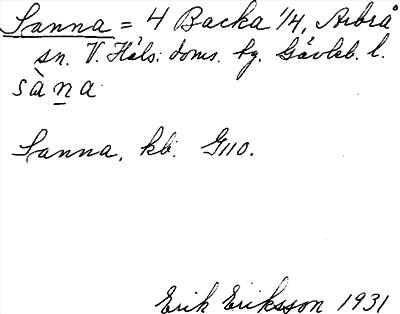 Sanna = 4 Backa 1/4, Arbrå
sn. V. Häls. doms. hg. Gävleb. l.
sàṉa
Sanna, kb. G110.
Erik Eriksson 1931